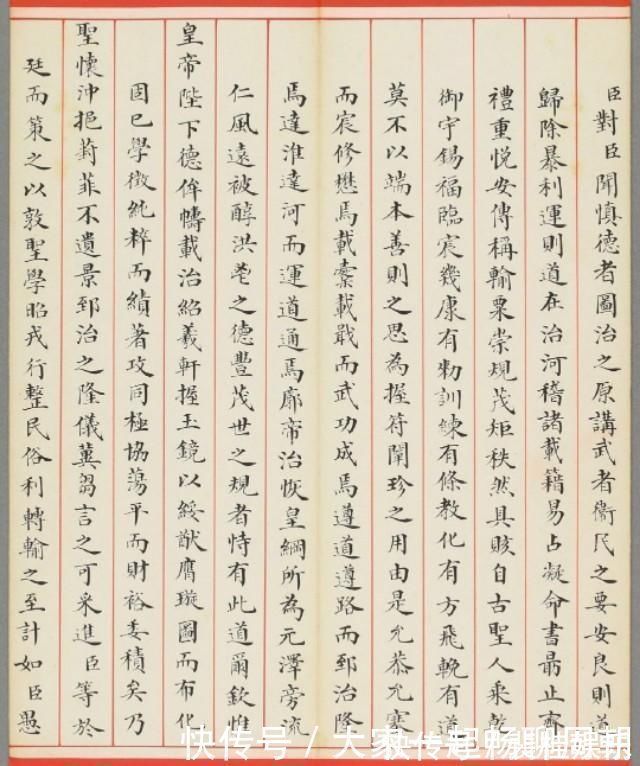 臣對臣聞慎德者圖治之原講武者衛民之要安良則道
歸除暴利運則道在治河稽諸載籍易占凝命書最止齊
禮重悅安傳稱輸粟崇規茂矩秩然具賅自古聖人乘乾
御宇錫福臨宸幾康有勑訓練有條教化有方飛輓有道
莫不以端本善則之思為握符闡珍之用由是允恭允塞
而宸修懋焉載櫜載戢而武功成焉遵道遵路而郅治隆
焉達淮達河而運道通焉廓帝治恢皇綱所為元澤旁流
仁風遠被醇洪鬯之德豐茂世之規者恃有此道爾欽惟
皇帝陛下德侔幬載治紹羲軒握玉鏡以綏猷膺璇圖而布化
固已學徵純粹而績著攻同極協蕩平而財裕委積矣乃
聖懷沖挹葑菲不遺景郅治之隆儀冀芻言之可采進臣等於
廷而策之以敦聖學昭戎行整民俗利轉輸之至計如臣愚
快传号 / 大家